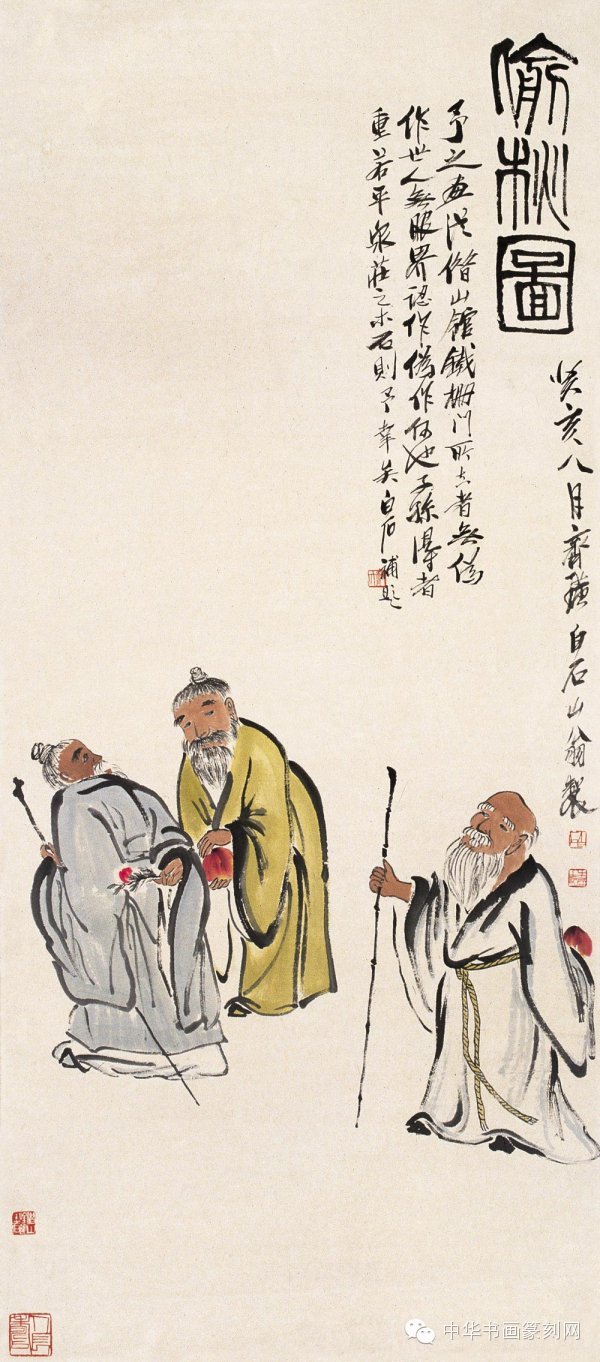 偷桃圖
癸亥八月齊璜白石山翁製
予之畫從借山館鐵柵門所去者無偽
作世人無眼界認作偽作何也子孫得者
重若平泉莊之木石則予幸矣白石補題
中华书画篆刻网